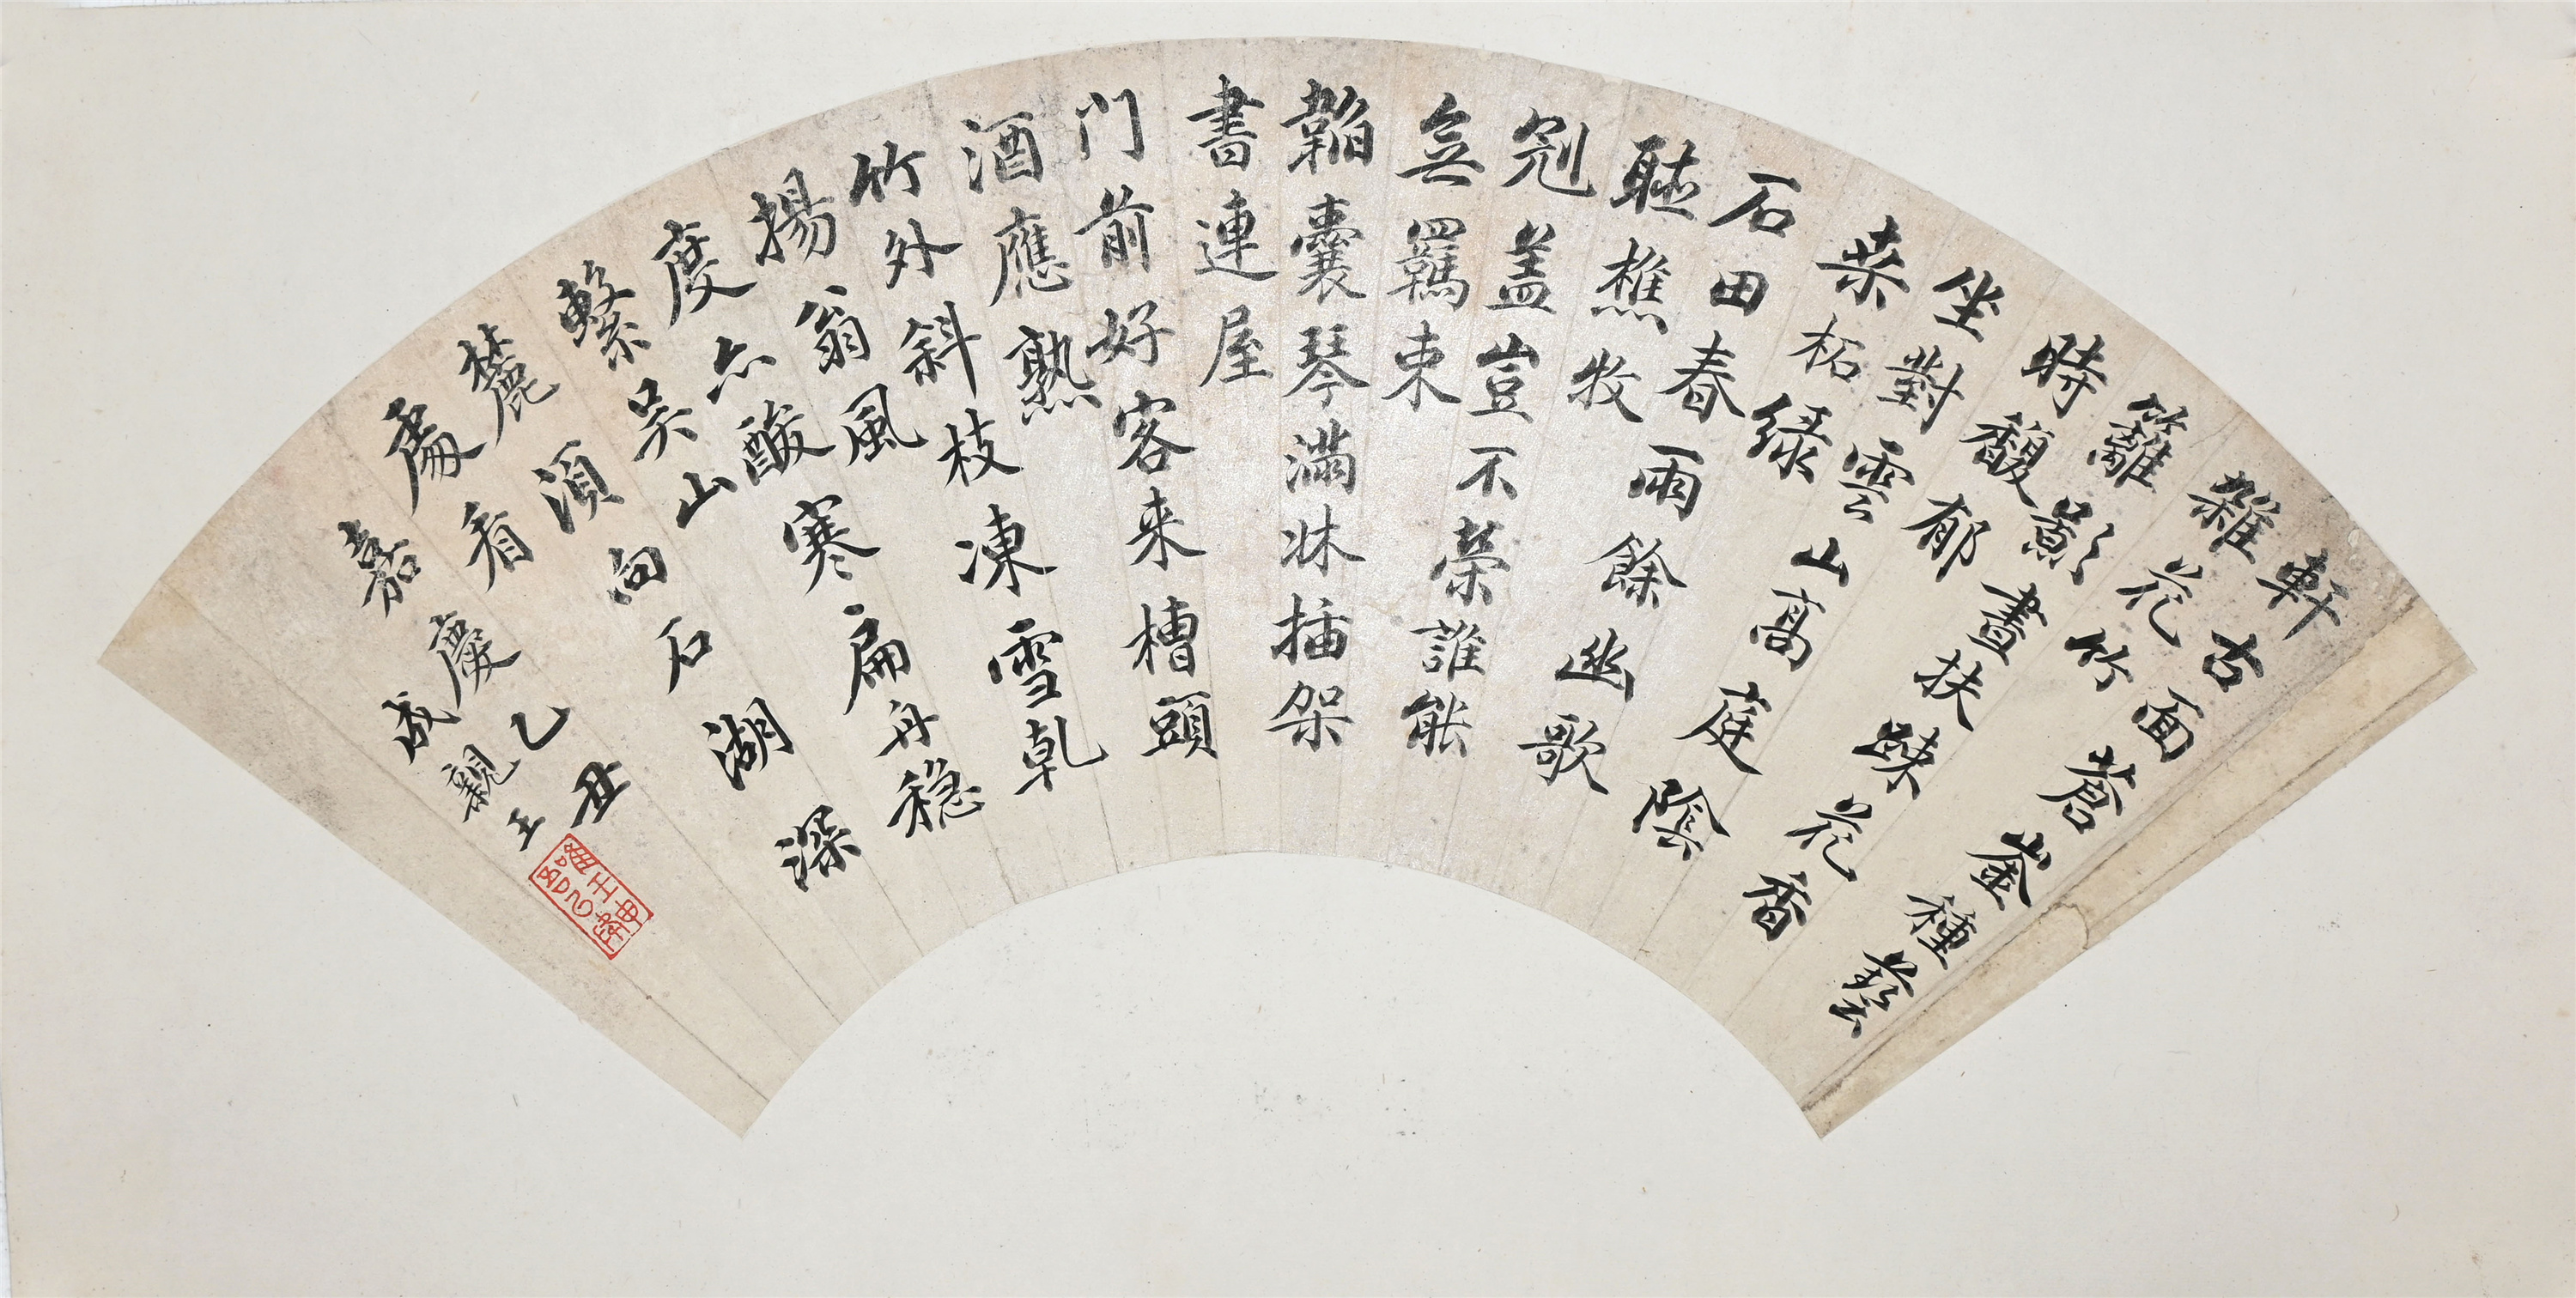 軒古面蒼崟種藝
雜花竹
籬影晝扶疎花香
時馥郁
坐對雲山髙庭陰
桒柘緑
石田春雨餘幽歌
聴樵牧
冠盖豈不榮誰能
無羈束
韜囊琴滿牀插架
書連屋
门前好客来槽頭
酒應熟
竹外斜枝凍雪乾
揚翁風
度亦酸寒扁舟穏
繫吴山
麓須向石湖深
處看
嘉慶乙丑
成親王